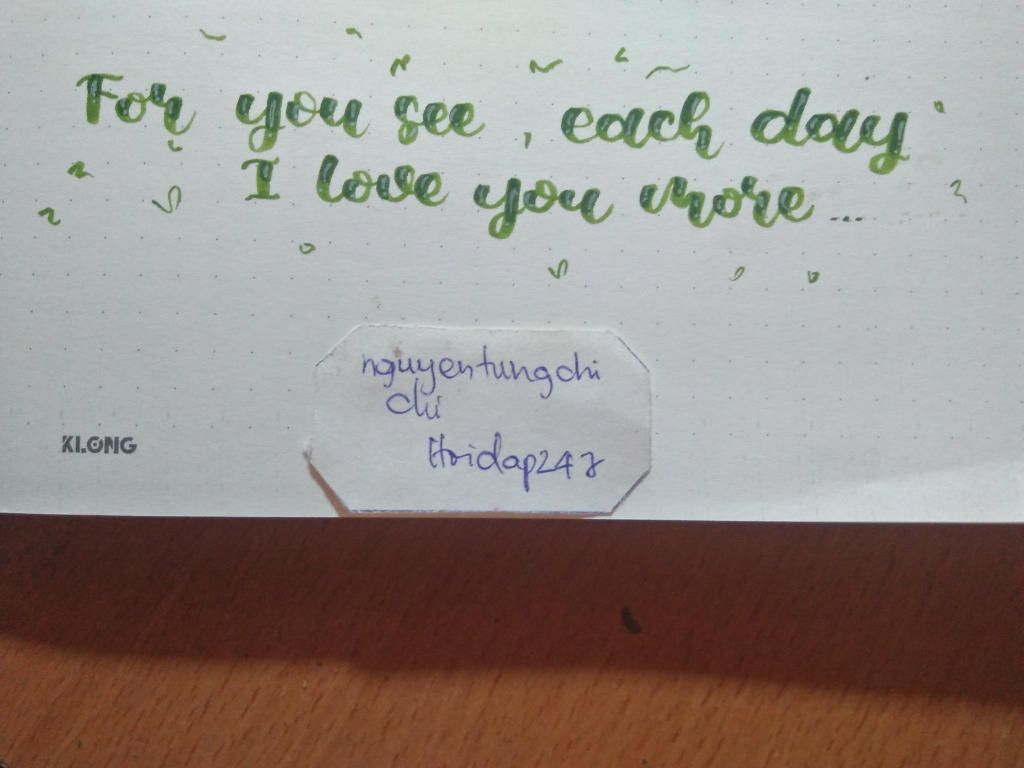 For you see, each day
I love you more...
nguyentungchi
chi
Hoidap247
KLONG